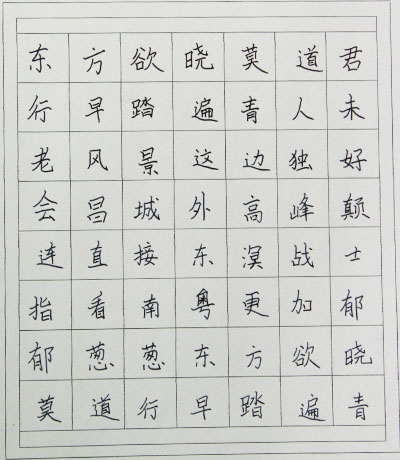 东方欲晓莫道君
行早踏遍青人未
老风景这边独好
会昌城外高峰颠
连直接东溟战士
指看南粤更加郁
郁葱葱东方欲晓
莫道行早踏遍青